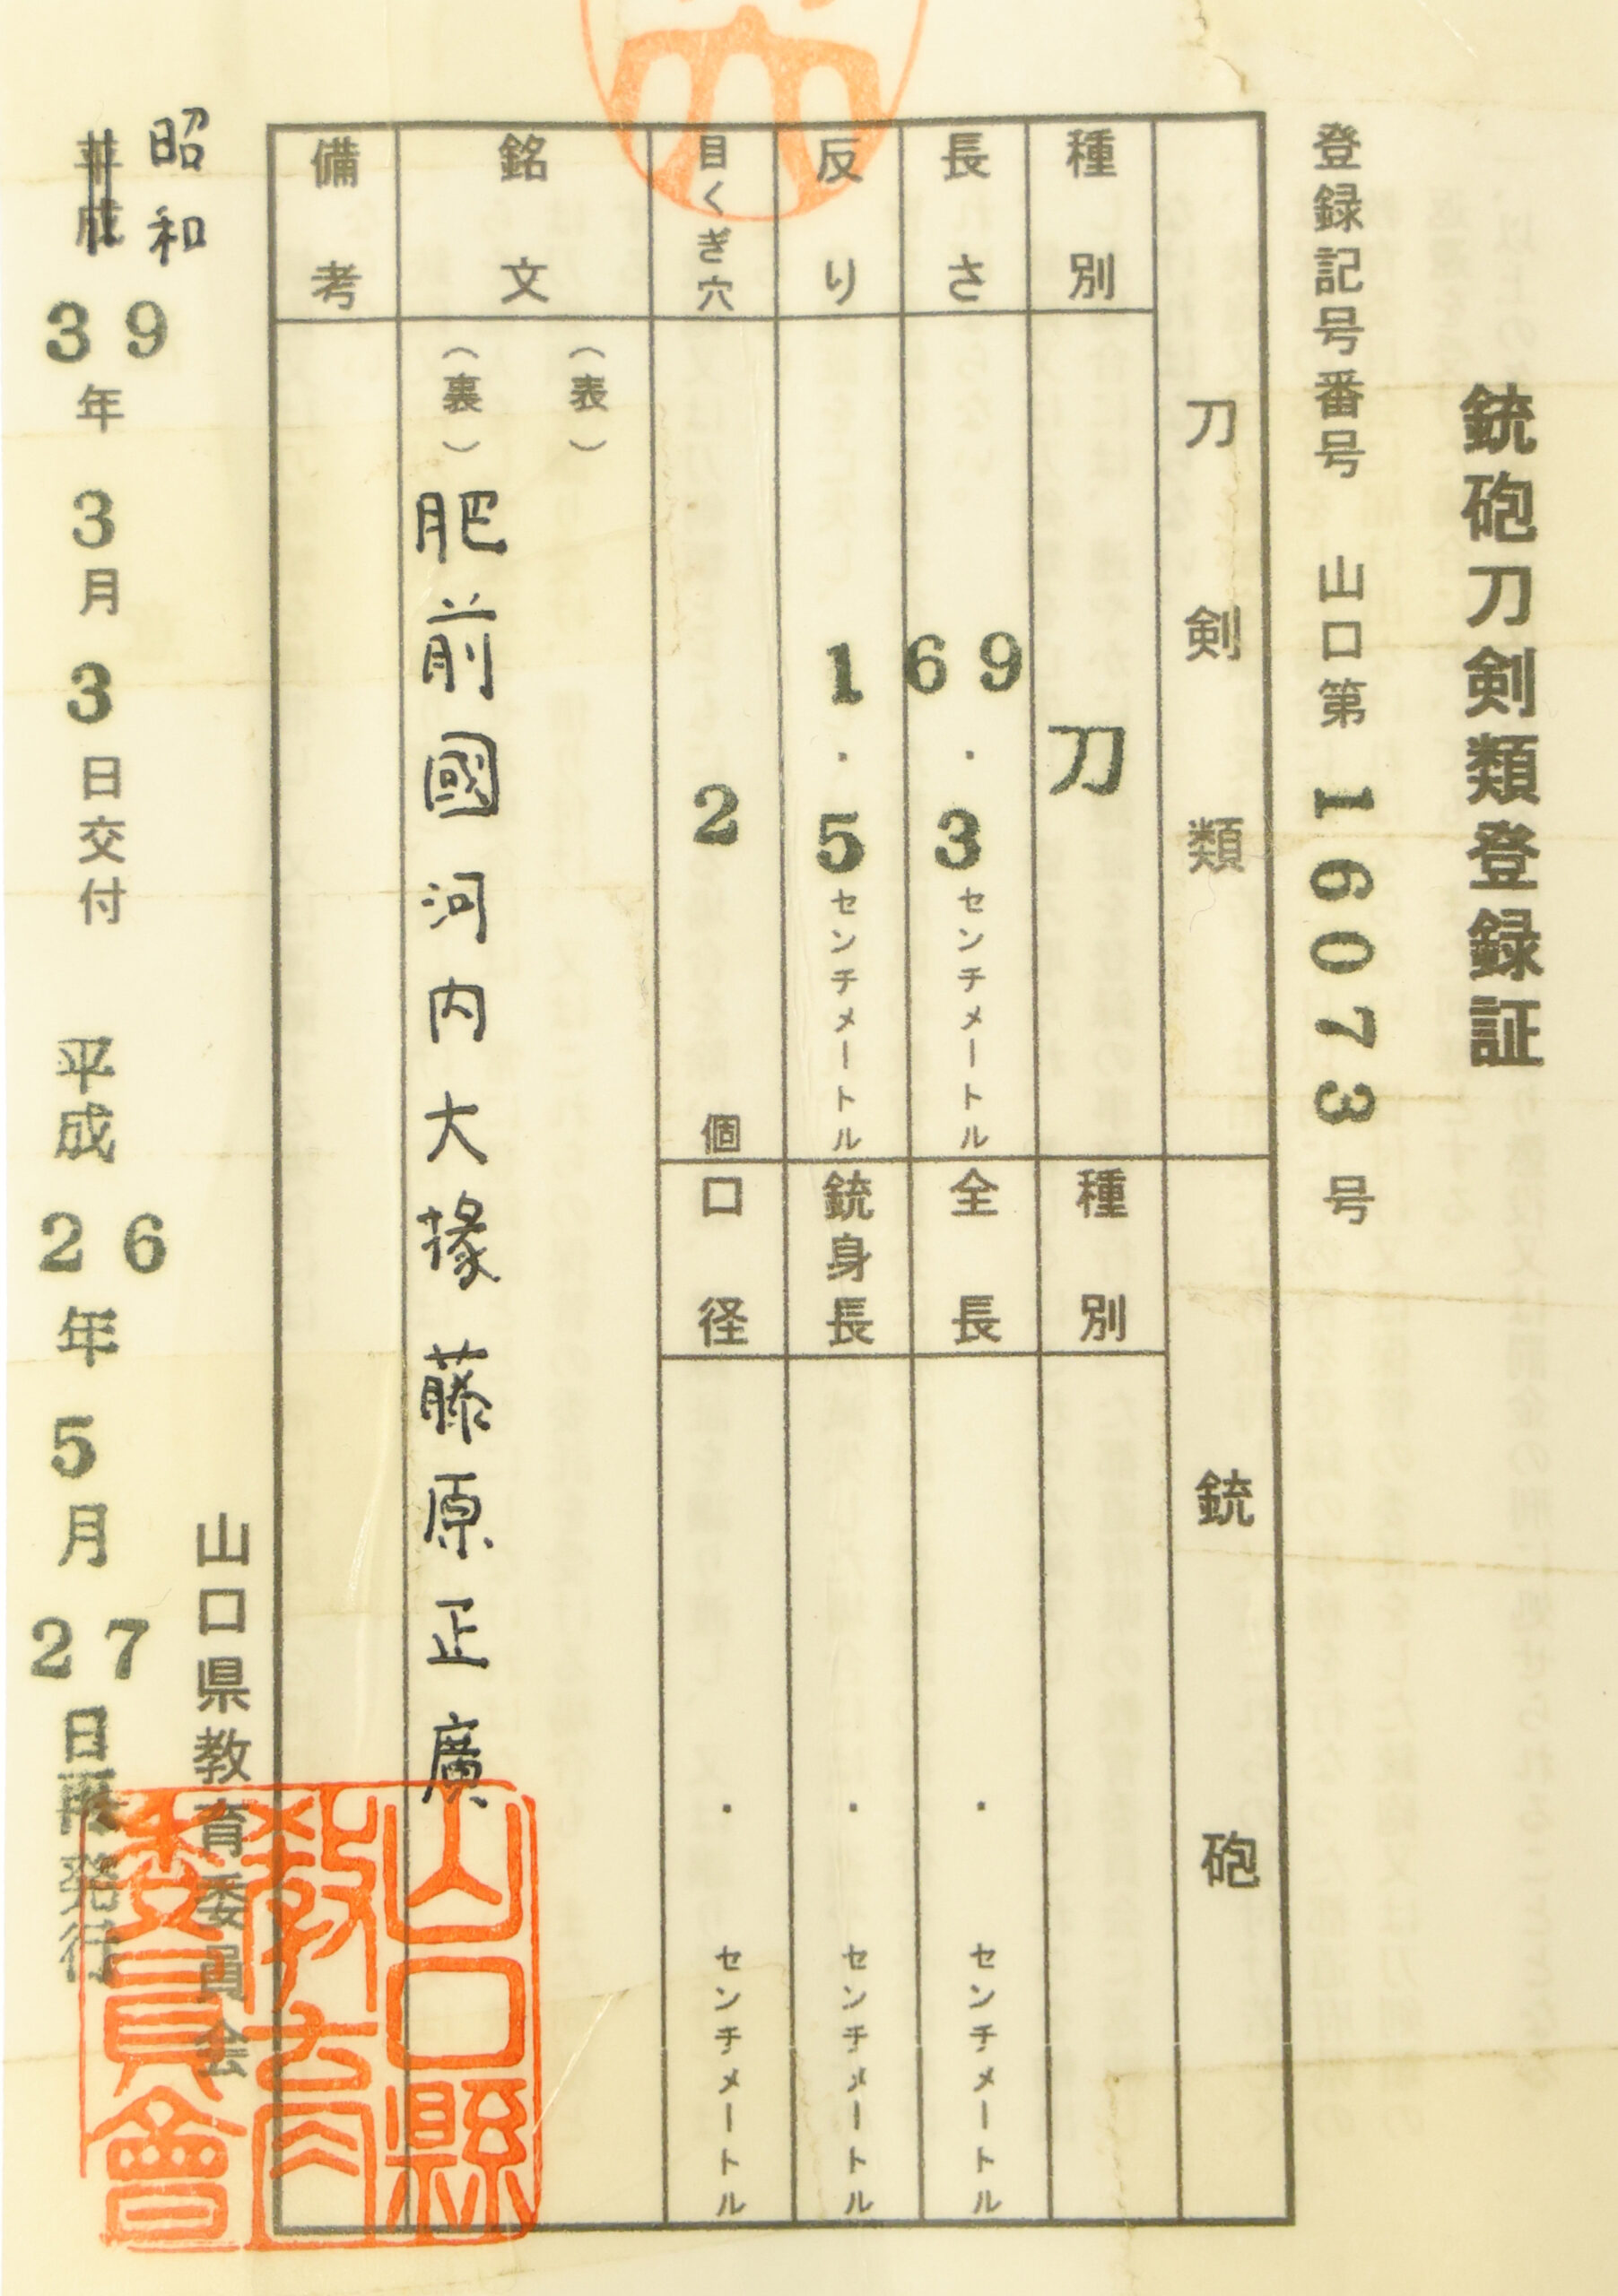 銃砲刀剣類登録証
登録記号番号 山口第 16073 号
刀剣類
種別 刀
長さ 69.3 センチメートル
反り 1.5 センチメートル
目くぎ穴 2 個
銘文
(表)
(裏) 肥前國河内大掾藤原正廣
備考
銃砲
種別
全長 . センチメートル
銃身長 . センチメートル
口径 . センチメートル
山口県教育委員会
昭和
平成 39年 3月 3日交付 平成 26年 5月 27日再発行
山口縣
教育
委員會